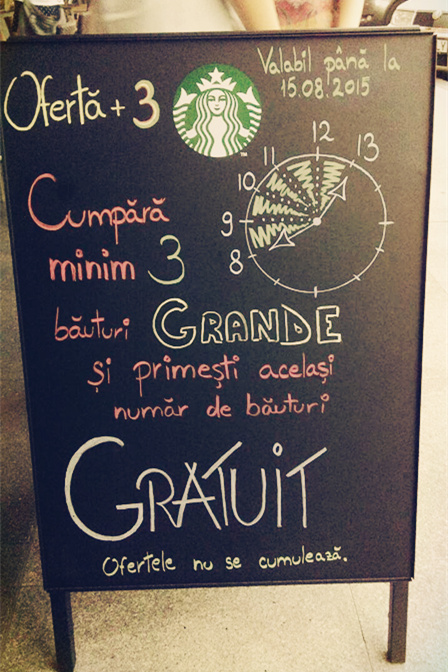 Valabil până la
15.08.2015
Ofertă + 3
12
11 13
10
9
8
Cumpără
minim 3
băuturi GRANDE
și primești același
număr de băuturi
GRATUIT
Ofertele nu se cumulează.